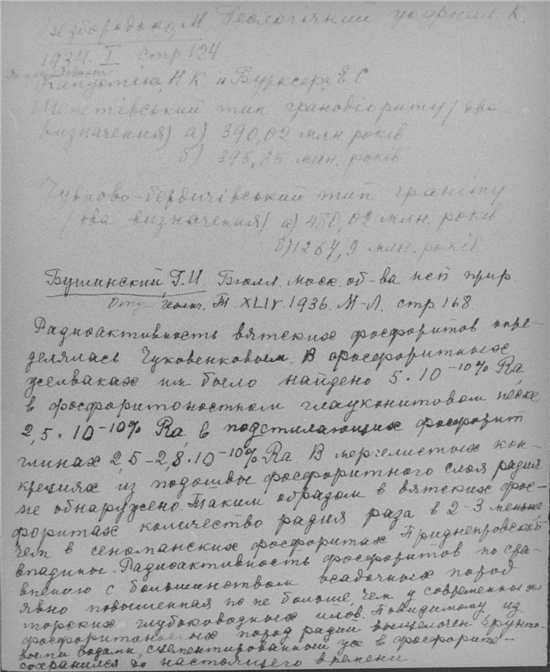 Безбородько М. Геологічний журнал К.
1934. I стр 124
По исследованию
Капустіна, Н К и Бурксера, Е С
Шепетівський тип гранодіориту (два
визначення) а) 390,02 млн років
б) 395,85 млн. років
Чудново-бердичівський тип граніту
(два визначення) а) 480,02 млн. років
б) 1267,9 млн. років
Бушинский, Г.И. Бюлл. моск. об-ва исп прир
Отд. геолог. Т. XLIV. 1936. М-Л. стр 168
Радиоактивность вятских фосфоритов опре-
делялась Чуковенковым. В фосфоритных
желваках им было найдено 5·10-10% Ra
в фосфоритоностном глауконитовом песке
2,5·10-10% Ra, в подстилающих фосфорит
глинах 2,5-2,8·10-10% Ra В мергелистых кон-
крециях из подошвы фосфоритного слоя радия
не обнаружено. Таким образом в вятских фос-
форитах количество радия раза в 2-3 меньше
чем в сеноманских фосфоритах Приднепровской
впадины. Радиоактивность фосфоритов по сра-
внению с большинством осадочных пород
явно повышенная но не больше чем у современных
морских глубоководных илов. Повидимому из
фосфоритоносных пород радий выщелочен грунто-
выми водами, сцементированный же в фосфорите
сохранился до настоящего времени.